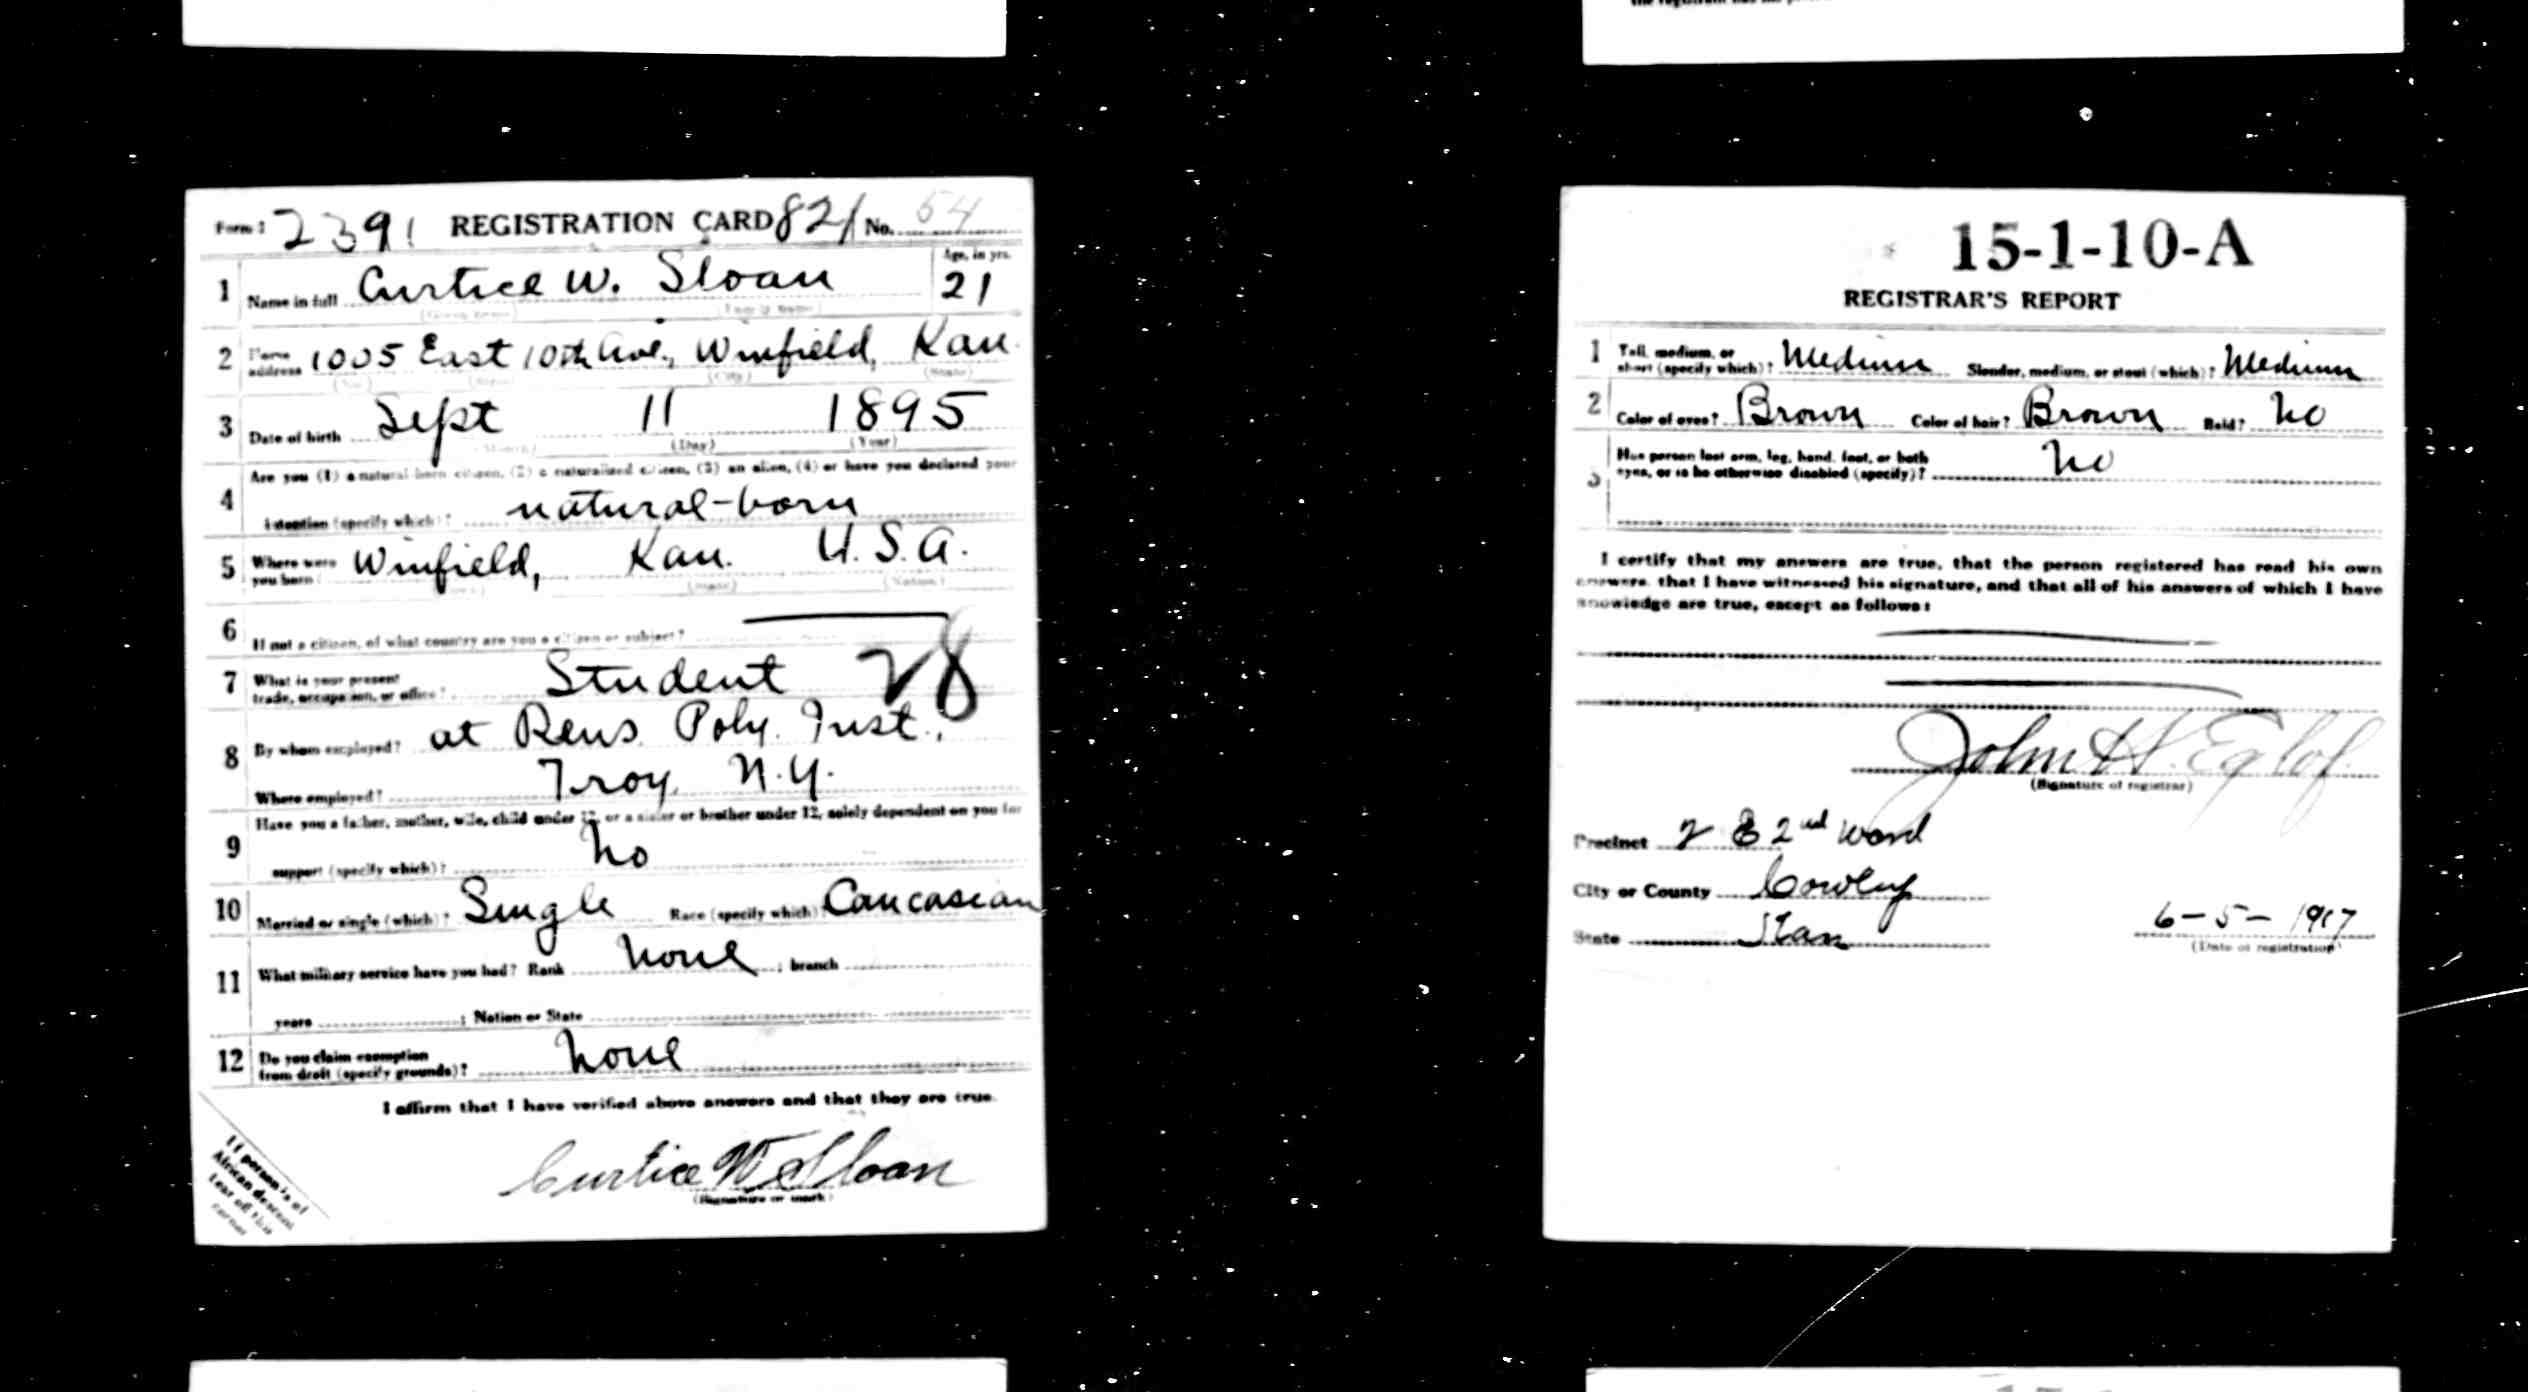 Form 1 2391 REGISTRATION CARD 821 No. 54
1 Name in full Curtice W. Sloan Age, in yrs. 21
(Given name) (Family name)
2 Home address 1005 East 10th Ave., Winfield, Kan.
(No.) (Street) (City) (State)
3 Date of birth Sept 11 1895
(Month) (Day) (Year)
4 Are you (1) a natural-born citizen, (2) a naturalized citizen, (3) an alien, (4) or have you declared your
intention (specify which)? natural-born
5 Where were you born? Winfield, Kan. U.S.A.
(Town) (State) (Nation)
6 If not a citizen, of what country are you a citizen or subject?
7 What is your present
trade, occupation, or office? Student 28
8 By whom employed? at Rens. Poly. Inst.,
Where employed? Troy, N.Y.
9 Have you a father, mother, wife, child under 12, or a sister or brother under 12, solely dependent on you for
support (specify which)? No
10 Married or single (which)? Single Race (specify which)? Caucasian
11 What military service have you had? Rank None ; branch
years ; Nation or State
12 Do you claim exemption
from draft (specify grounds)? None
I affirm that I have verified above answers and that they are true.
Curtice W. Sloan
(Signature or mark)
If person is of
African descent
tear off this
corner
15-1-10-A
REGISTRAR'S REPORT
1 Tall, medium, or
short (specify which)? Medium Slender, medium, or stout (which)? Medium
2 Color of eyes? Brown Color of hair? Brown Bald? No
3 Has person lost arm, leg, hand, foot, or both
eyes, or is he otherwise disabled (specify)? No
I certify that my answers are true, that the person registered has read his own
answers, that I have witnessed his signature, and that all of his answers of which I have
knowledge are true, except as follows:
John H. Eglof
(Signature of registrar)
Precinct 2 E 2nd Ward
City or County Cowley
State Kan
6-5-1917
(Date of registration)